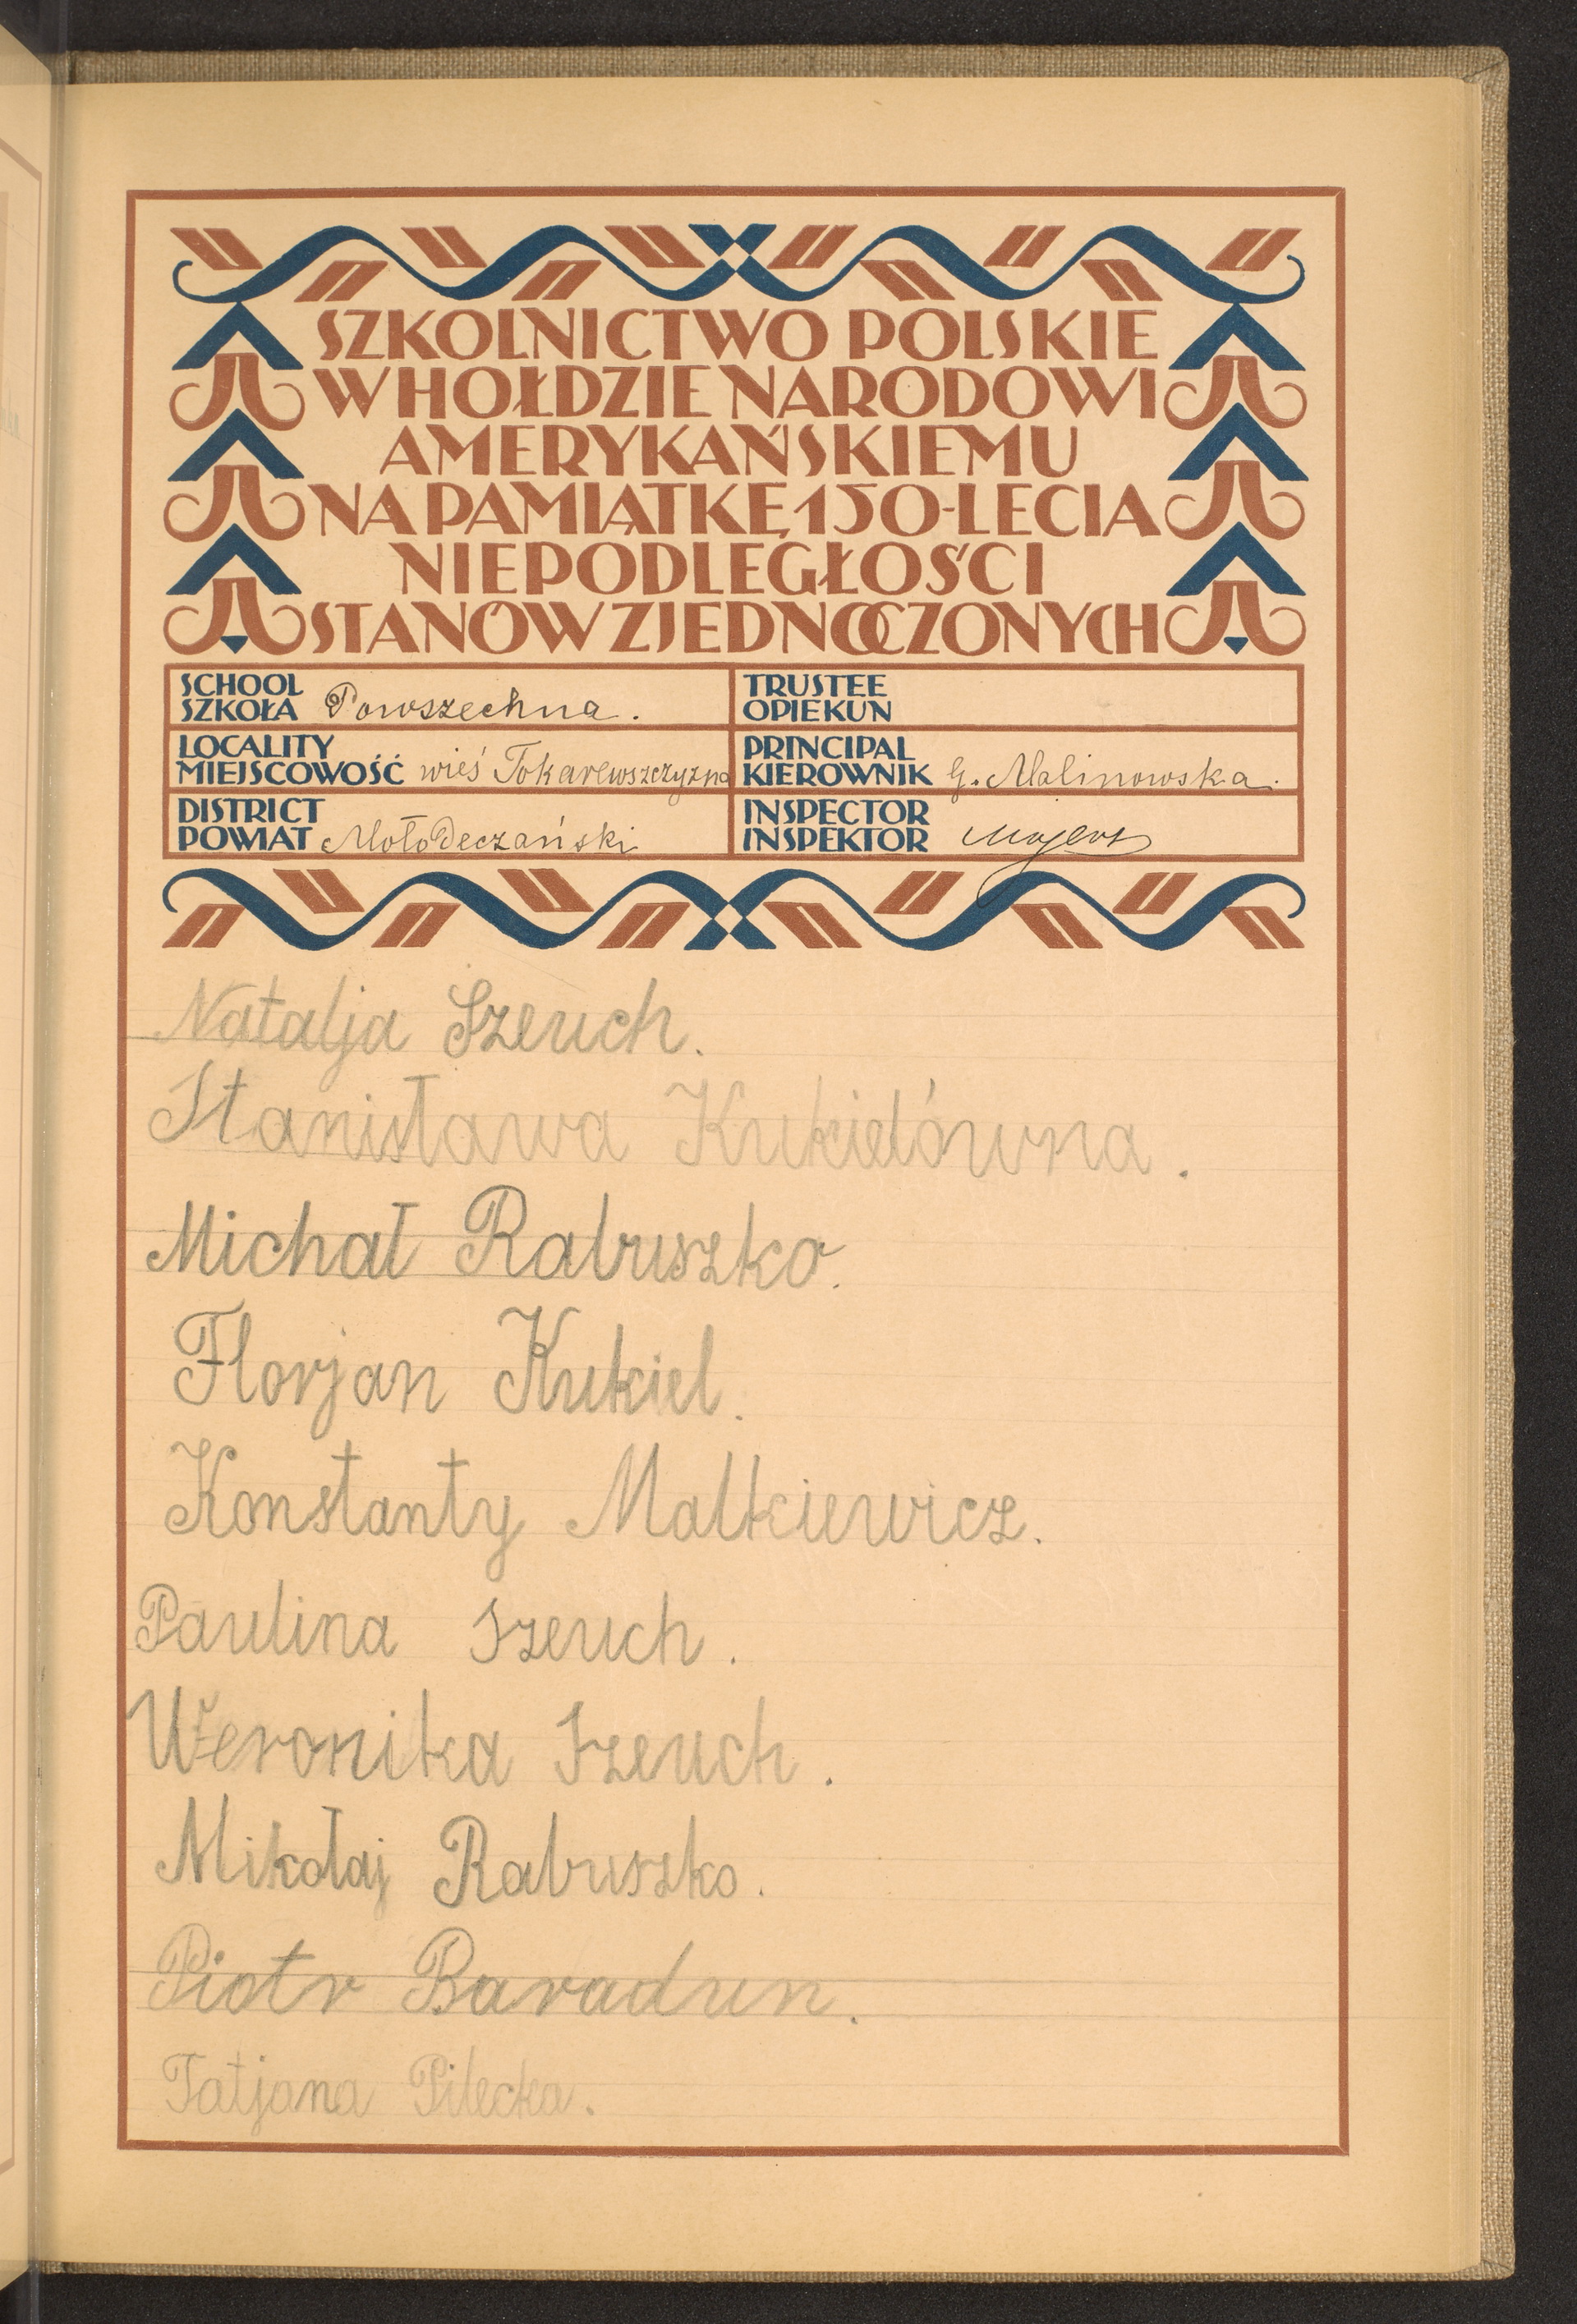 SZKOLNICTWO POLSKIE
W HOŁDZIE NARODOWI
AMERYKAŃSKIEMU
NA PAMIĄTKĘ 150-LECIA
NIEPODLEGŁOŚCI
STANÓW ZJEDNOCZONYCH
SCHOOL
SZKOŁA Powszechna.
TRUSTEE
OPIEKUN
LOCALITY
MIEJSCOWOŚĆ wieś Tokarewszczyzna
PRINCIPAL
KIEROWNIK G. Malinowska.
DISTRICT
POWIAT Mołodeczański
INSPECTOR
INSPEKTOR
Natalja Szeuch.
Stanisława Kukielówna.
Michał Rabuszko.
Florjan Kukiel.
Konstanty Malkiewicz.
Paulina Szeuch.
Weronika Szeuch.
Mikołaj Rabuszko.
Piotr Baradun.
Tatjana Pilecka.